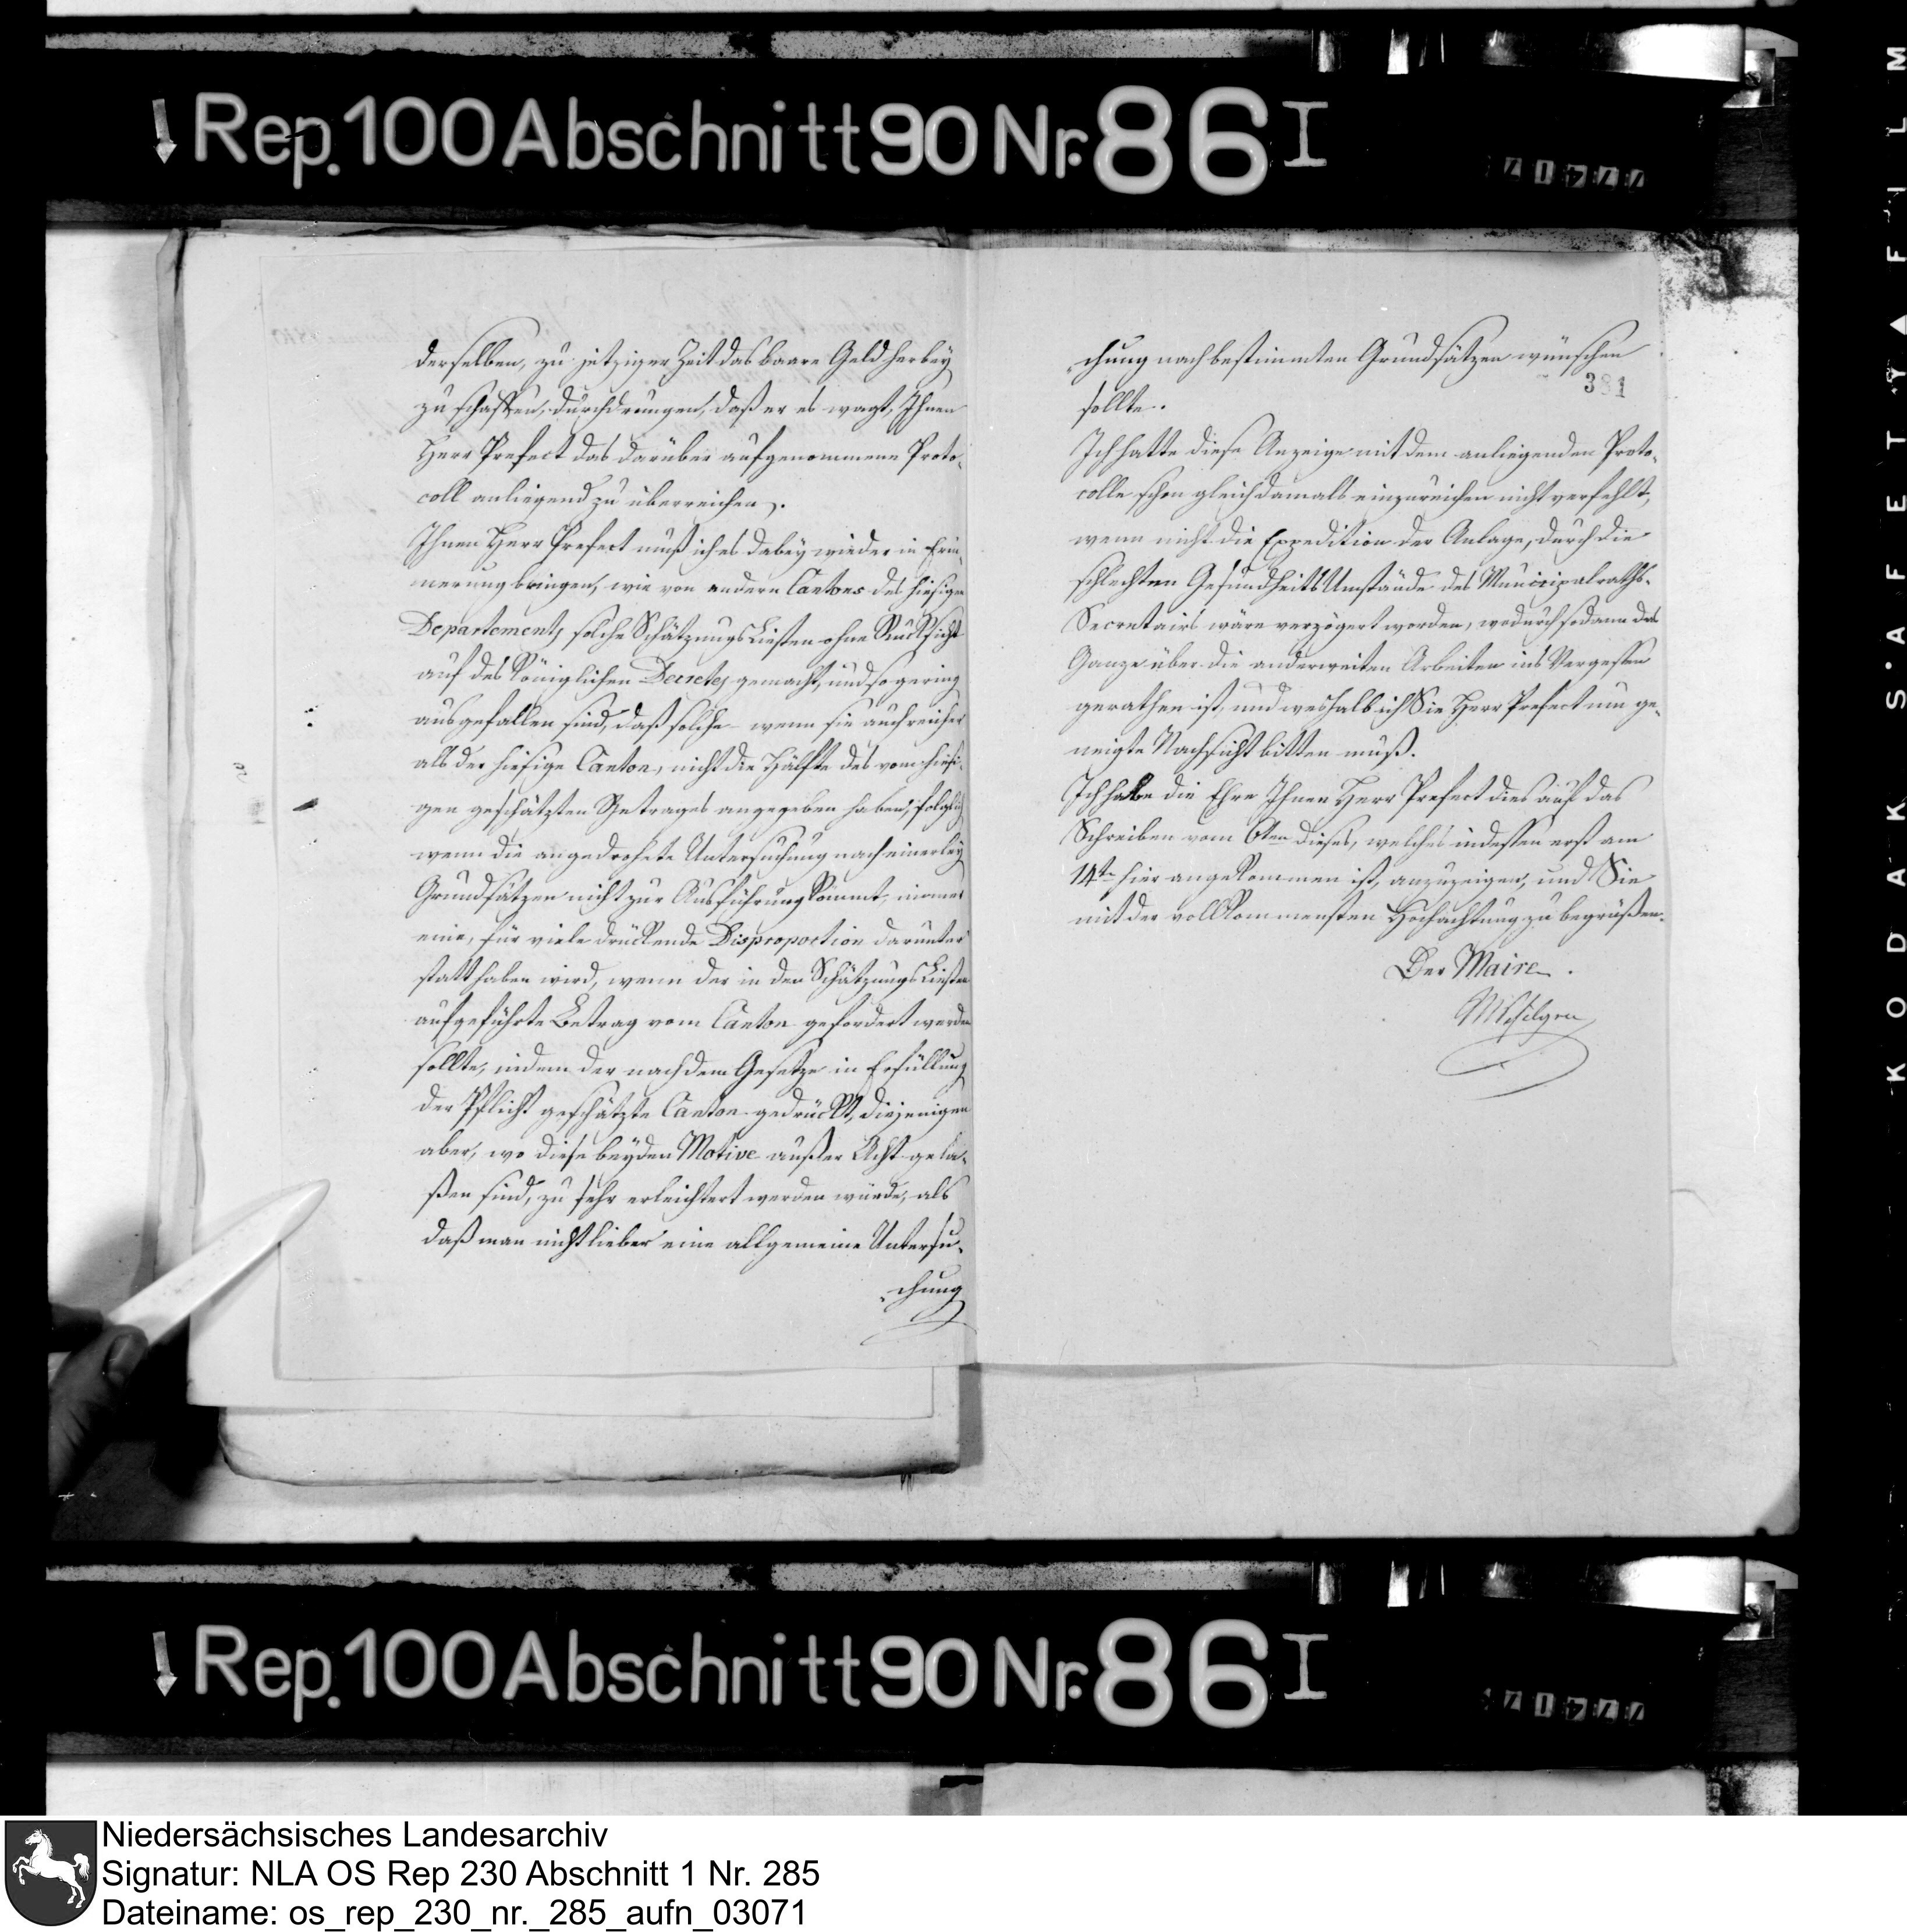 Rep. 100 Abschnitt 90 Nr. 86 I
derselben, zu jetziger Zeit das baare Geld herbey
zu schaffen, durchdrungen, daß er es wagt, Ihnen
Herr Prefect das darüber aufgenommene Proto-
coll anliegend zu überreichen.
Ihnen Herr Prefect muß ich es dabey wieder in Erin-
nerung bringen, wie von andern Cantons des hiesigen
Departements solche Schätzungs Listen ohne Rücksicht
auf des Königlichen Decretes gemacht, und so gering
ausgefallen sind, daß solche wenn sie auch reicher
als der hiesige Canton, nicht die Hälfte des vom hiesi-
gen geschätzten Betrages angegeben haben, folglich
wenn die angedrohete Untersuchung nach einerley
Grundsätzen nicht zur Ausführung kömmt, immer
eine, für viele drückende Disproportion darunter
statt haben wird, wenn der in den Schätzungs Listen
aufgeführte Betrag vom Canton gefordert werden
sollte, indem der nach dem Gesetze in Erfüllung
der Pflicht geschätzte Canton gedrückt, diejenigen
aber, wo diese beyden Motive außer Acht gela-
ßen sind, zu sehr erleichtert werden würde, als
daß man nicht lieber eine allgemeine Untersu-
chung
chung nach bestimmten Grundsätzen wünschen
381
sollte.
Ich hatte diese Anzeige mit dem anliegenden Proto-
colle schon gleich damals einzureichen nicht verfehlt,
wenn nicht die Expedition der Anlage, durch die
schlechten Gesundheits Umstände des Municipalraths-
Secretairs wäre verzögert worden, wodurch sodann das
Ganze über die anderweiten Arbeiten ins Vergessen
gerathen ist, und weshalb ich Sie Herr Prefect um ge-
neigte Nachsicht bitten muß.
Ich habe die Ehre Ihnen Herr Prefect dies auf das
Schreiben vom 6ten dieses, welches indessen erst am
14ten hier angekommen ist, anzuzeigen, und Sie
mit der vollkommensten Hochachtung zu begrüßen.
Der Maire.
Rep. 100 Abschnitt 90 Nr. 86 I
KODAK SAFETY FILM
Niedersächsisches Landesarchiv
Signatur: NLA OS Rep 230 Abschnitt 1 Nr. 285
Dateiname: os_rep_230_nr._285_aufn_03071